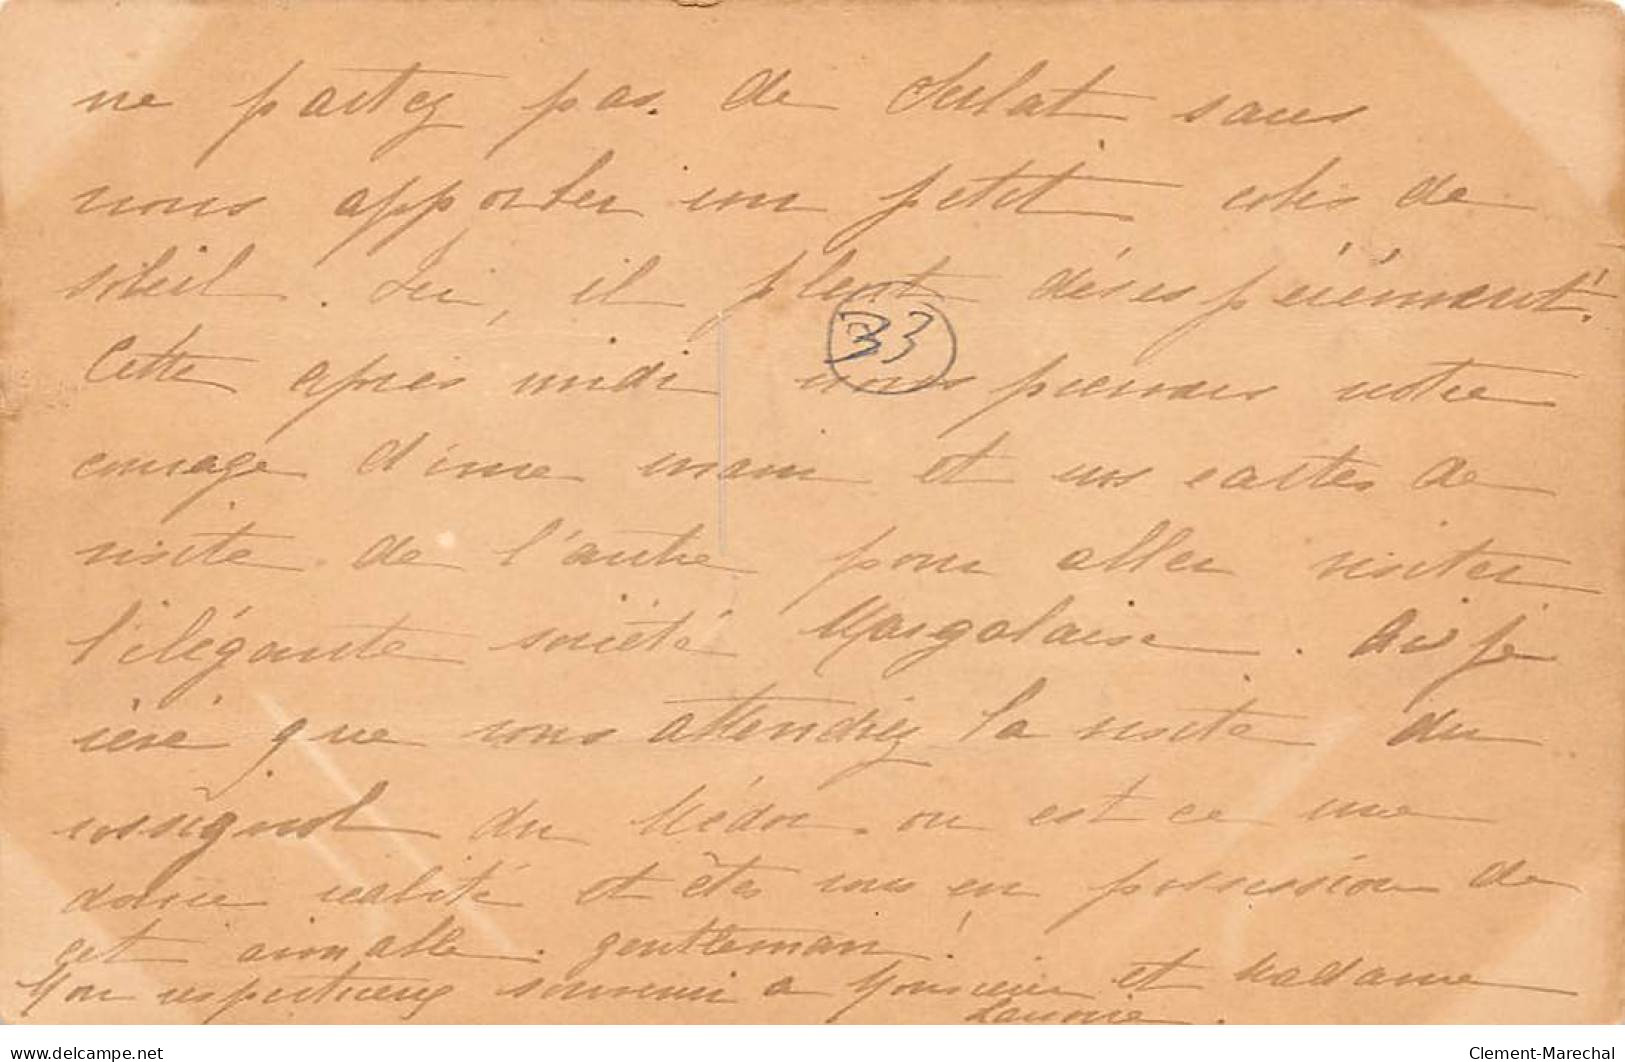 ne partez pas de Soulat sans
nous apporter un petit colis de
soleil. Ici, il pleut désespérément.
33
Cette après midi nous prenons notre
courage d'une main et nos cartes de
visite de l'autre pour aller visiter
l'élégante société Margalaise. Ai-je
rêvé que vous attendiez la visite du
rossignol du Médoc. ou est ce une
douce réalité et êtes vous en possession de
cet aimable gentleman!
Mon respectueux souvenir a Monsieur et Madame
www.delcampe.net
Clement-Marechal